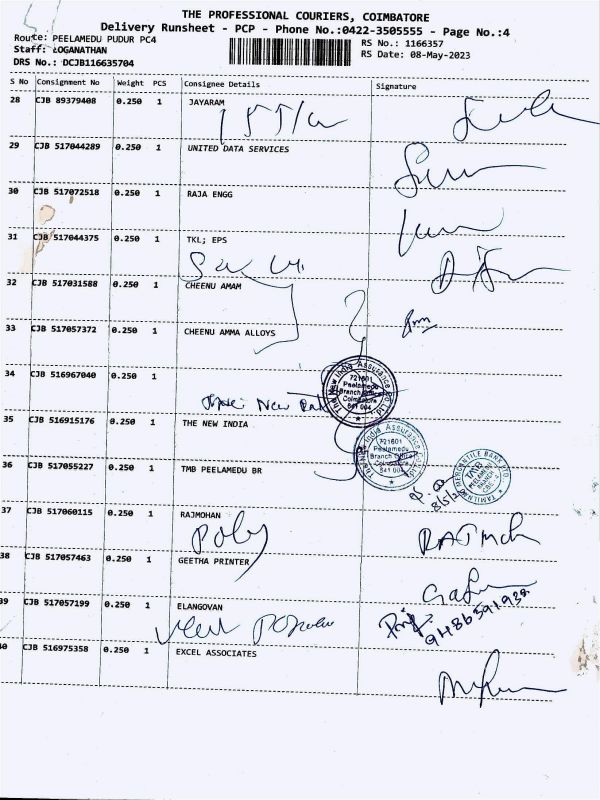 THE PROFESSIONAL COURIERS, COIMBATORE
Delivery Runsheet - PCP - Phone No.:0422-3505555 - Page No.:4
Route: PEELAMEDU PUDUR PC4
RS No.: 1166357
Staff: LOGANATHAN
RS Date: 08-May-2023
DRS No.: DCJB116635704
S No Consignment No Weight PCS Consignee Details Signature
28 CJB 89379408 0.250 1 JAYARAM
29 CJB 517044289 0.250 1 UNITED DATA SERVICES
30 CJB 517072518 0.250 1 RAJA ENGG
31 CJB 517044375 0.250 1 TKL; EPS
32 CJB 517031588 0.250 1 CHEENU AMAM
33 CJB 517057372 0.250 1 CHEENU AMMA ALLOYS
34 CJB 516967040 0.250 1
The New India Assurance
721601
Peelamedu
Branch Office
Coimbatore
641 004
35 CJB 516915176 0.250 1 THE NEW INDIA
The New India Assurance
721601
Peelamedu
Branch Office
Coimbatore
641 004
36 CJB 517055227 0.250 1 TMB PEELAMEDU BR
TAMILNAD MERCANTILE BANK LTD
PEELAMEDU
BRANCH
37 CJB 517060115 0.250 1 RAJMOHAN
38 CJB 517057463 0.250 1 GEETHA PRINTER
39 CJB 517057199 0.250 1 ELANGOVAN
40 CJB 516975358 0.250 1 EXCEL ASSOCIATES